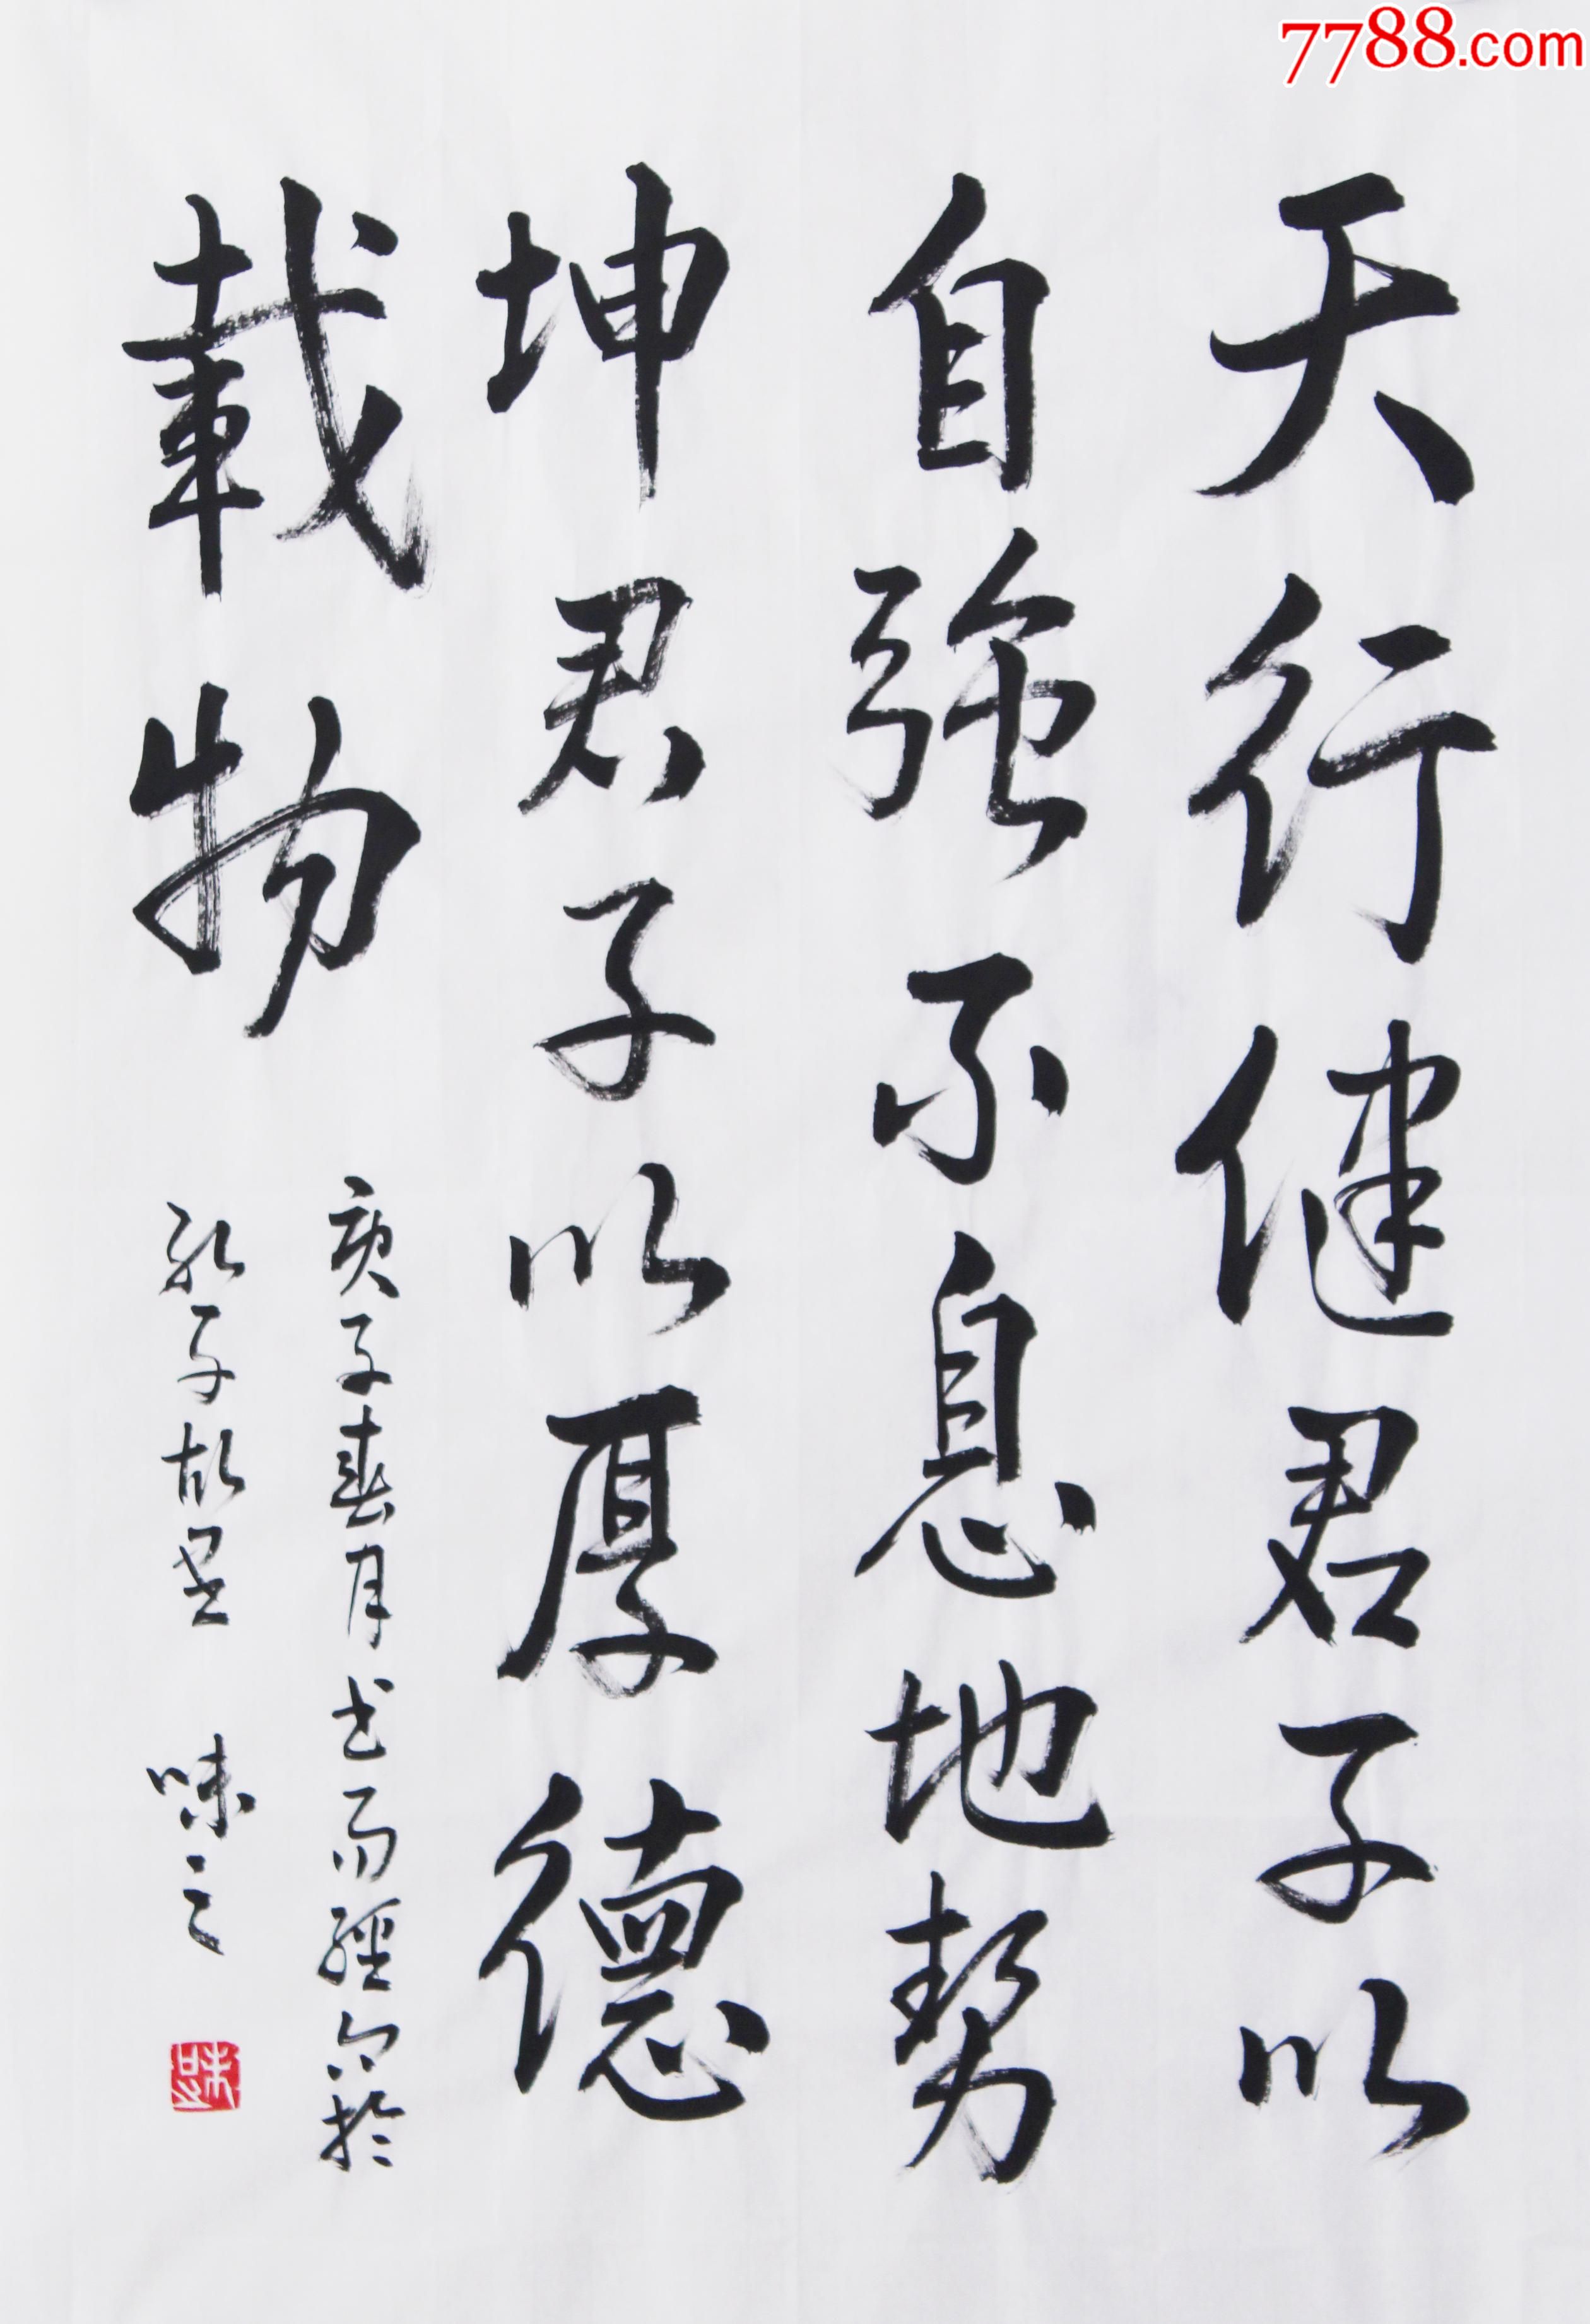 天行健君子以
自強不息地勢
坤君子以厚德
載物
庚子春月书易經句於
孔子故里 味之
7788.com